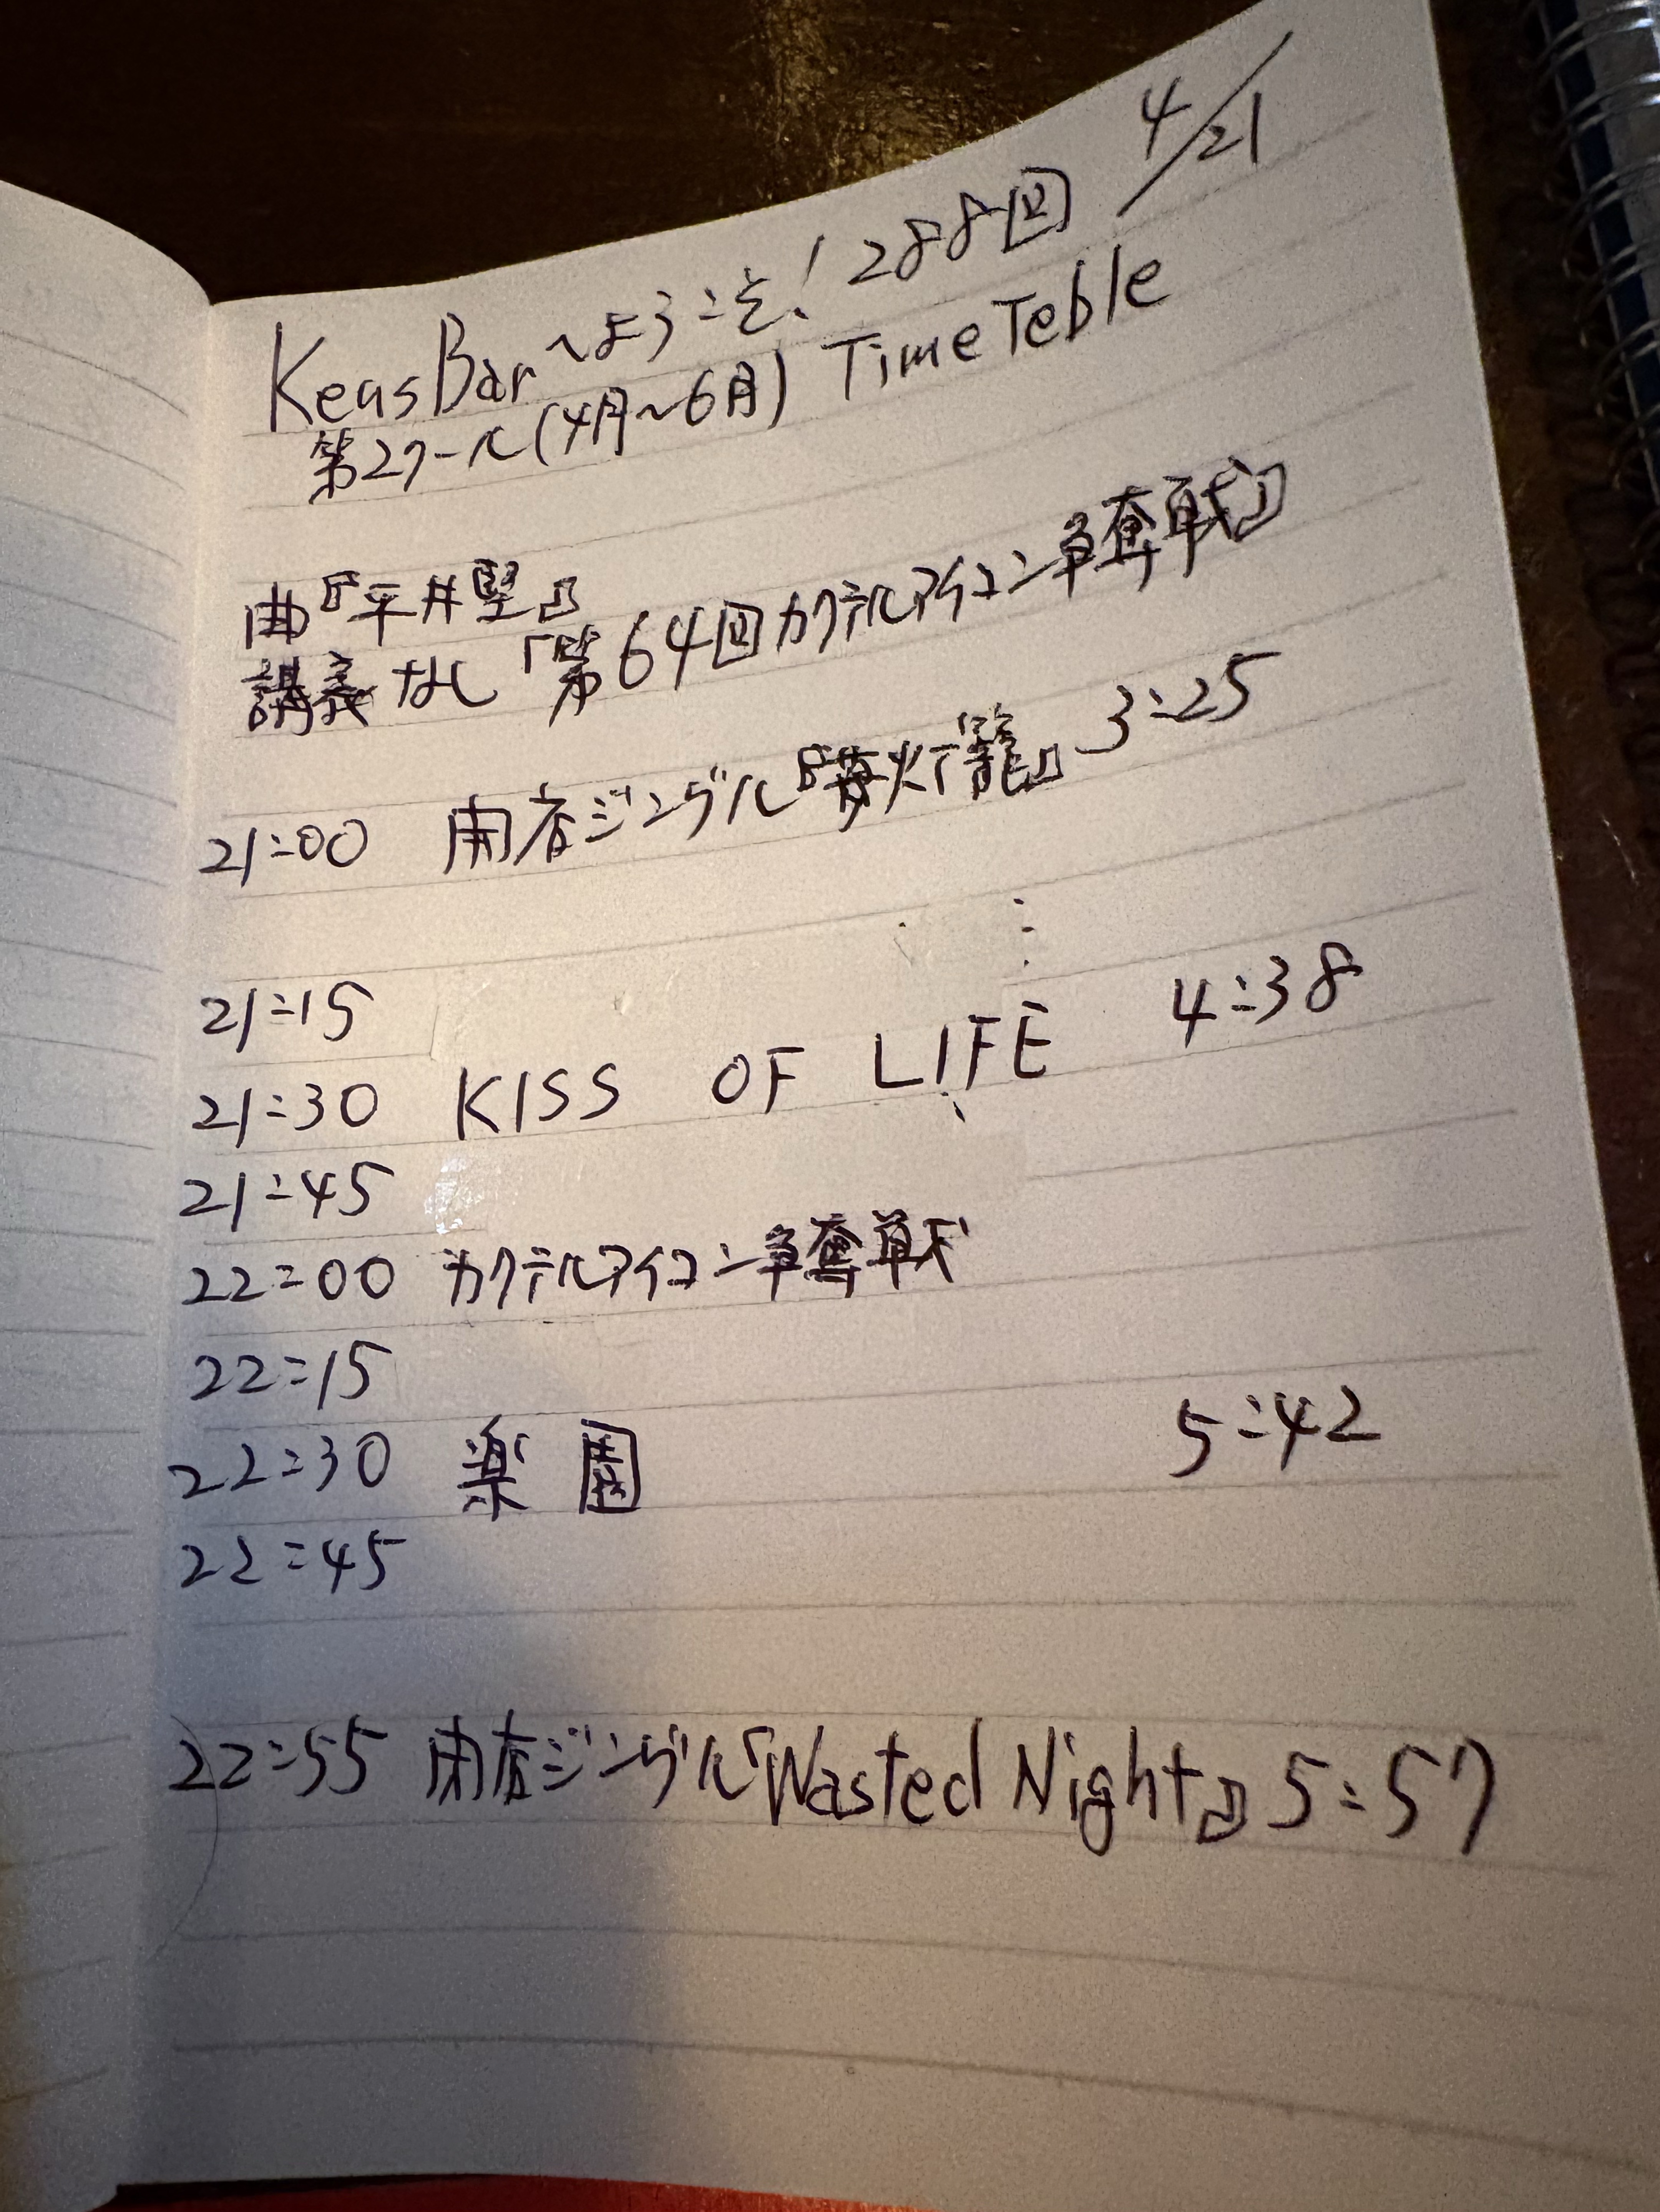 4/21
KeasBarへようこそ! 288回
第2クール(4月~6月) TimeTeble
曲『平井堅』
講義なし『第64回カクテルアイコン争奪戦』
21:00 開店ジングル『苺灯籠』 3:25
21:15
21:30 KISS OF LIFE 4:38
21:45
22:00 カクテルアイコン争奪戦
22:15
22:30 楽園 5:42
22:45
22:55 閉店ジングル『Wasted Night』 5:57